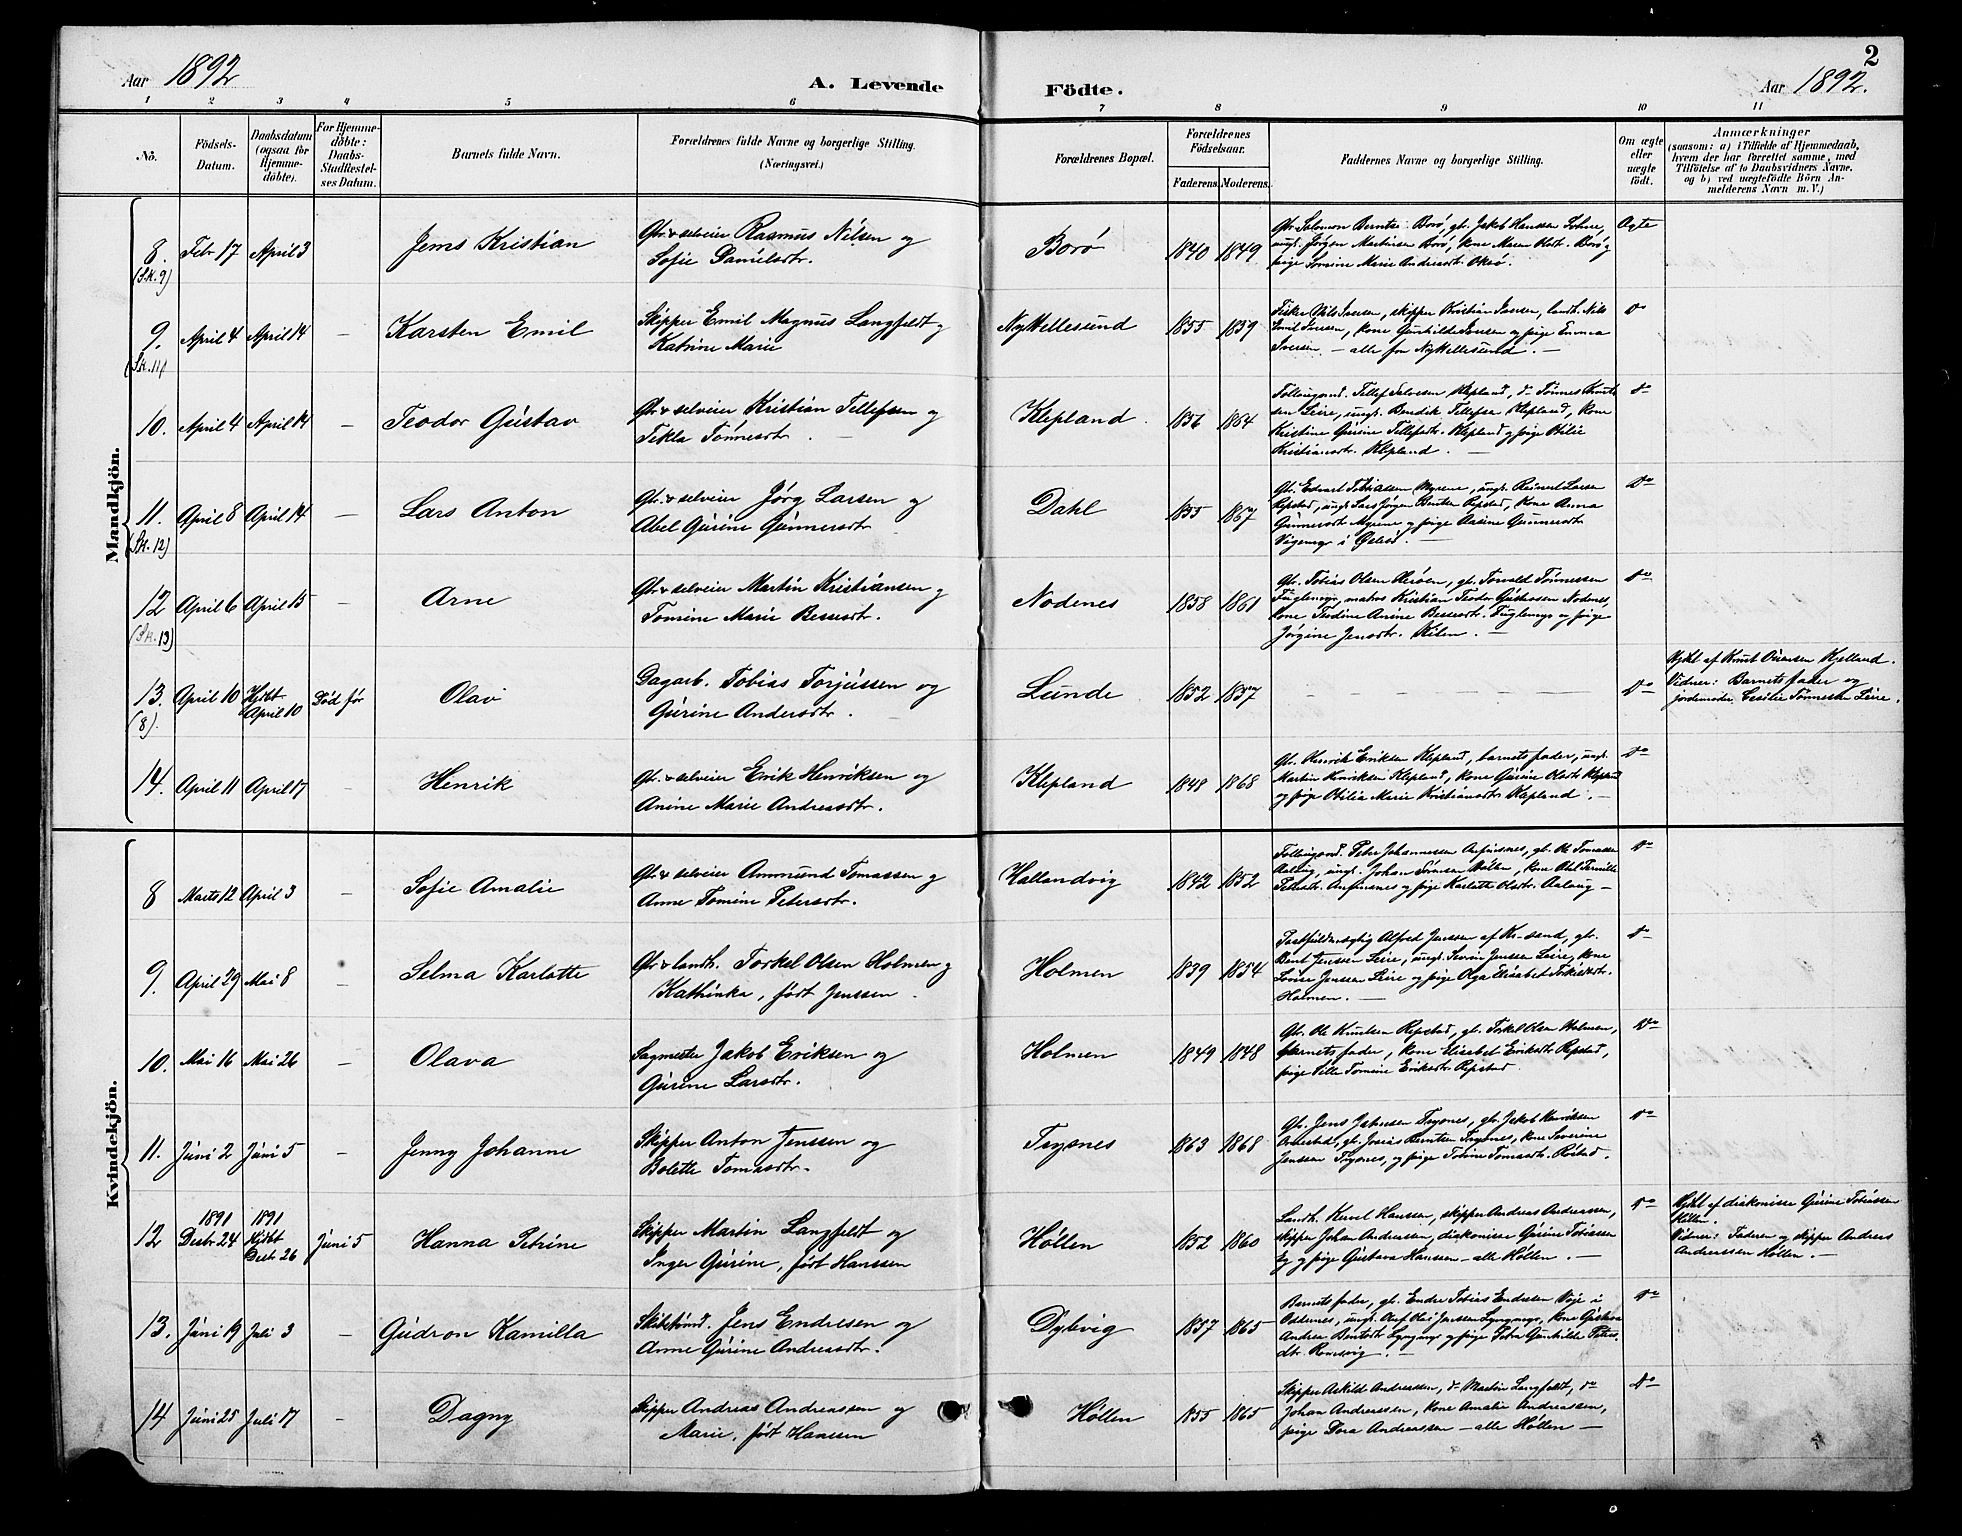 Aar 1892
A. Levende
Födte.
2
Aar 1892.
1 2 3 4 5 6 7 8 9 10 11
No.
Födsels-
Datum.
Daabsdatum
(ogsaa for
Hjemme-
döbte).
For Hjemme-
döbte:
Daabs-
Stadfæstel-
ses Datum.
Barnets fulde Navn.
Forældrenes fulde Navne og borgerlige Stilling.
(Næringsvei.)
Forældrenes Bopæl.
Forældrenes
Födselsaar.
Faderens. Moderens.
Faddernes Navne og borgerlige Stilling.
Om ægte
eller
uægte
födt.
Anmærkninger
(saasom: a) i Tilfælde af Hjemmedaab,
hvem der har forrettet samme, med
Tilföielse af to Daabsvidners Navne.
og b) ved uægtefödte Börn An-
melderens Navn m. V.)
Mandkjön.
8.
(Sk. 9)
Febr 17 April 3
Jens Kristian
Gbr. & selveier Rasmus Nilsen og
Sofie Danielsdtr.
Borø
1840 1849
Gbr. Salomon Berntse Borø, gt. Jakob Hanssen
ungk. Jørgen Martinsen Borø, kone Maren Borø &
pige Marie Andreasdtr.
Ægte
9.
(Sk. 11)
April 4 April 14 —
Karsten Emil
Skipper Emil Magnus Langfeldt og
Katrine Marie
Ny Hellesund
1855 1859
Fisker Nils Iversen, skipper Kristian Jansen, landh. Nils
Emil Iversen, kone Gunhilde Iversen og pige Emma
Iversen — alle fra Ny Hellesund. —
do
10.
April 4 April 14 —
Teodor Gustav
Gbr. & selveier Kristian Tellefsen og
Tekla Tønnesdtr. —
Klepland.
1856 1864
Follaugsmd. Tellef Salvesen Klepland, do Tønnes Knut-
sen Leire, ungk. Bendik Tellefsen Klepland, kone
Kristine Gurine Tellefsdtr. Klepland og pige Otilie
Kristiansdtr. Klepland. —
do
11.
(Sk. 12)
April 8 April 14 —
Lars Anton
Gbr. & selveier Jørg. Larsen og
Abel Gurine Gunnersdtr
Dahl
1855 1867
Gbr. Edvart Tobiassen Myrene, ungk. Reinert Larsen
Repstad, ungk. Lars Jørgen Repstad, kone Anna
Gunnersdtr Myrene og pige Aasine Gunnersdtr
i —
do
12
(Sk. 13)
April 6 April 15 —
Arne
Gbr. & selveier Martin Kristiansen og
Tomine Marie Bessesdtr.
Nodenes
1858 1861
Gbr. Tobias Olsen Herøen, gt. Torvald Tønnessen
Fuglevig, matros Kristian Teodor Nodenes,
kone Teodine Anine Bessesdtr. Fuglevig og pige
Jørgine Jensdtr. Kilen. —
do
13.
(8).
April 10 Hjdbt
April 10
Død før
Olav
Dagarb. Tobias Torjussen og
Gurine Andersdtr.
Lunde
1852 1857
— — — — —
do
Hjdbt af Knut Kjelland.
Vidner: Barnets fader og
jordemoder Cecilie Tønnesen Leire.
14.
April 11 April 17 —
Henrik
Gbr. & selveier Erik Henriksen og
Anine Marie Andreasdtr.
Klepland
1848 1868
Gbr. Henrik Eriksen Klepland, barnets fader, ungk.
Martin Henriksen Klepland, kone Gurine Olsdtr Klepland
og pige Otilia Marie Kristiansdtr Klepland. —
do
Kvindekjön.
8
Marts 12 April 3 —
Sofie Amalie
Gbr. & selveier Ammund Tomassen og
Anne Tomine Petersdtr.
Hallandvig
1842 1852
Follaugsmd. Peter Johannessen Anfinsnes, gt. Ole Tomassen
Aalvig, ungk. Johan Sørensen Høllen, kone
Petersdtr. Anfinsnes og pige Karlotte Olsdtr. —
do
9.
April 29 Mai 8 —
Selma Karlotte
Gbr & landh. Torkel Olsen Holmen og
Kathinka, født Jenssen.
Holmen
1839 1854
Alfred Jenssen af Kr.sand, gt.
Bent Jenssen Leire, ungk. Severin Jenssen Leire, kone
Lovise Jenssen Leire og pige Olga Elisabet Torkelsdtr.
Holmen. —
do
10.
Mai 16 Mai 26 —
Olava
Sagmester Jakob Eriksen og
Gurine Larsdtr.
Holmen
1849 1848
Gbr. Ole Knutsen Repstad, gt. Torkel Olsen Holmen,
barnets fader, kone Elisabet Eriksdtr Repstad,
pige Sille Tomine Eriksdtr Repstad.
do
11.
Juni 2 Juni 5 —
Jenny Johanne
Skipper Anton Jenssen og
Bolette Tomasdtr.
Trysnes
1863 1868
Gbr. Jens Jakobsen Trysnes, gt. Jakob Henriksen
gt. Josias Berntsen Trysnes, kone Severine
Jenssen Trysnes, og pige Tobine Tomasdtr.
do
12
1891
Decbr 24
1891
Hjdbt
Decbr 26
Juni 5
Hanna Petrine
Skipper Martin Langfeldt og
Inger Gurine, født Hanssen
Høllen
1852 1860
Landh. Hanssen, skipper Andreas Andreassen,
skipper Johan Andreassen, diakonisse Gurine Tobiassen
og pige Gustava Hanssen — alle Høllen. —
do
Hjdbt af diakonisse Gurine Tobiassen
Høllen.
Vidner: Faderen og skipper Andreas
Andreassen Høllen. —
13.
Juni 19 Juli 3 —
Gudron Kamilla
Jens Endresen og
Anne Gurine Andreasdtr.
Dybvig
1857 1865
Barnets fader, gt. Endre Tobias Endresen Voje i
Oddernes, ungk. Olai Jenssen kone
Andrea og pige Gunhilde Peters-
dtr. Romsvig. —
do
14
Juni 25 Juli 17 —
Dagny
Skipper Andreas Andreassen og
Marie, født Hanssen
Høllen
1855 1865
Skipper Askild Andreassen, do Martin Langfeldt, do
Johan Andreassen, kone Amalie Andreassen,
pige Dora Andreassen — alle Høllen —
do